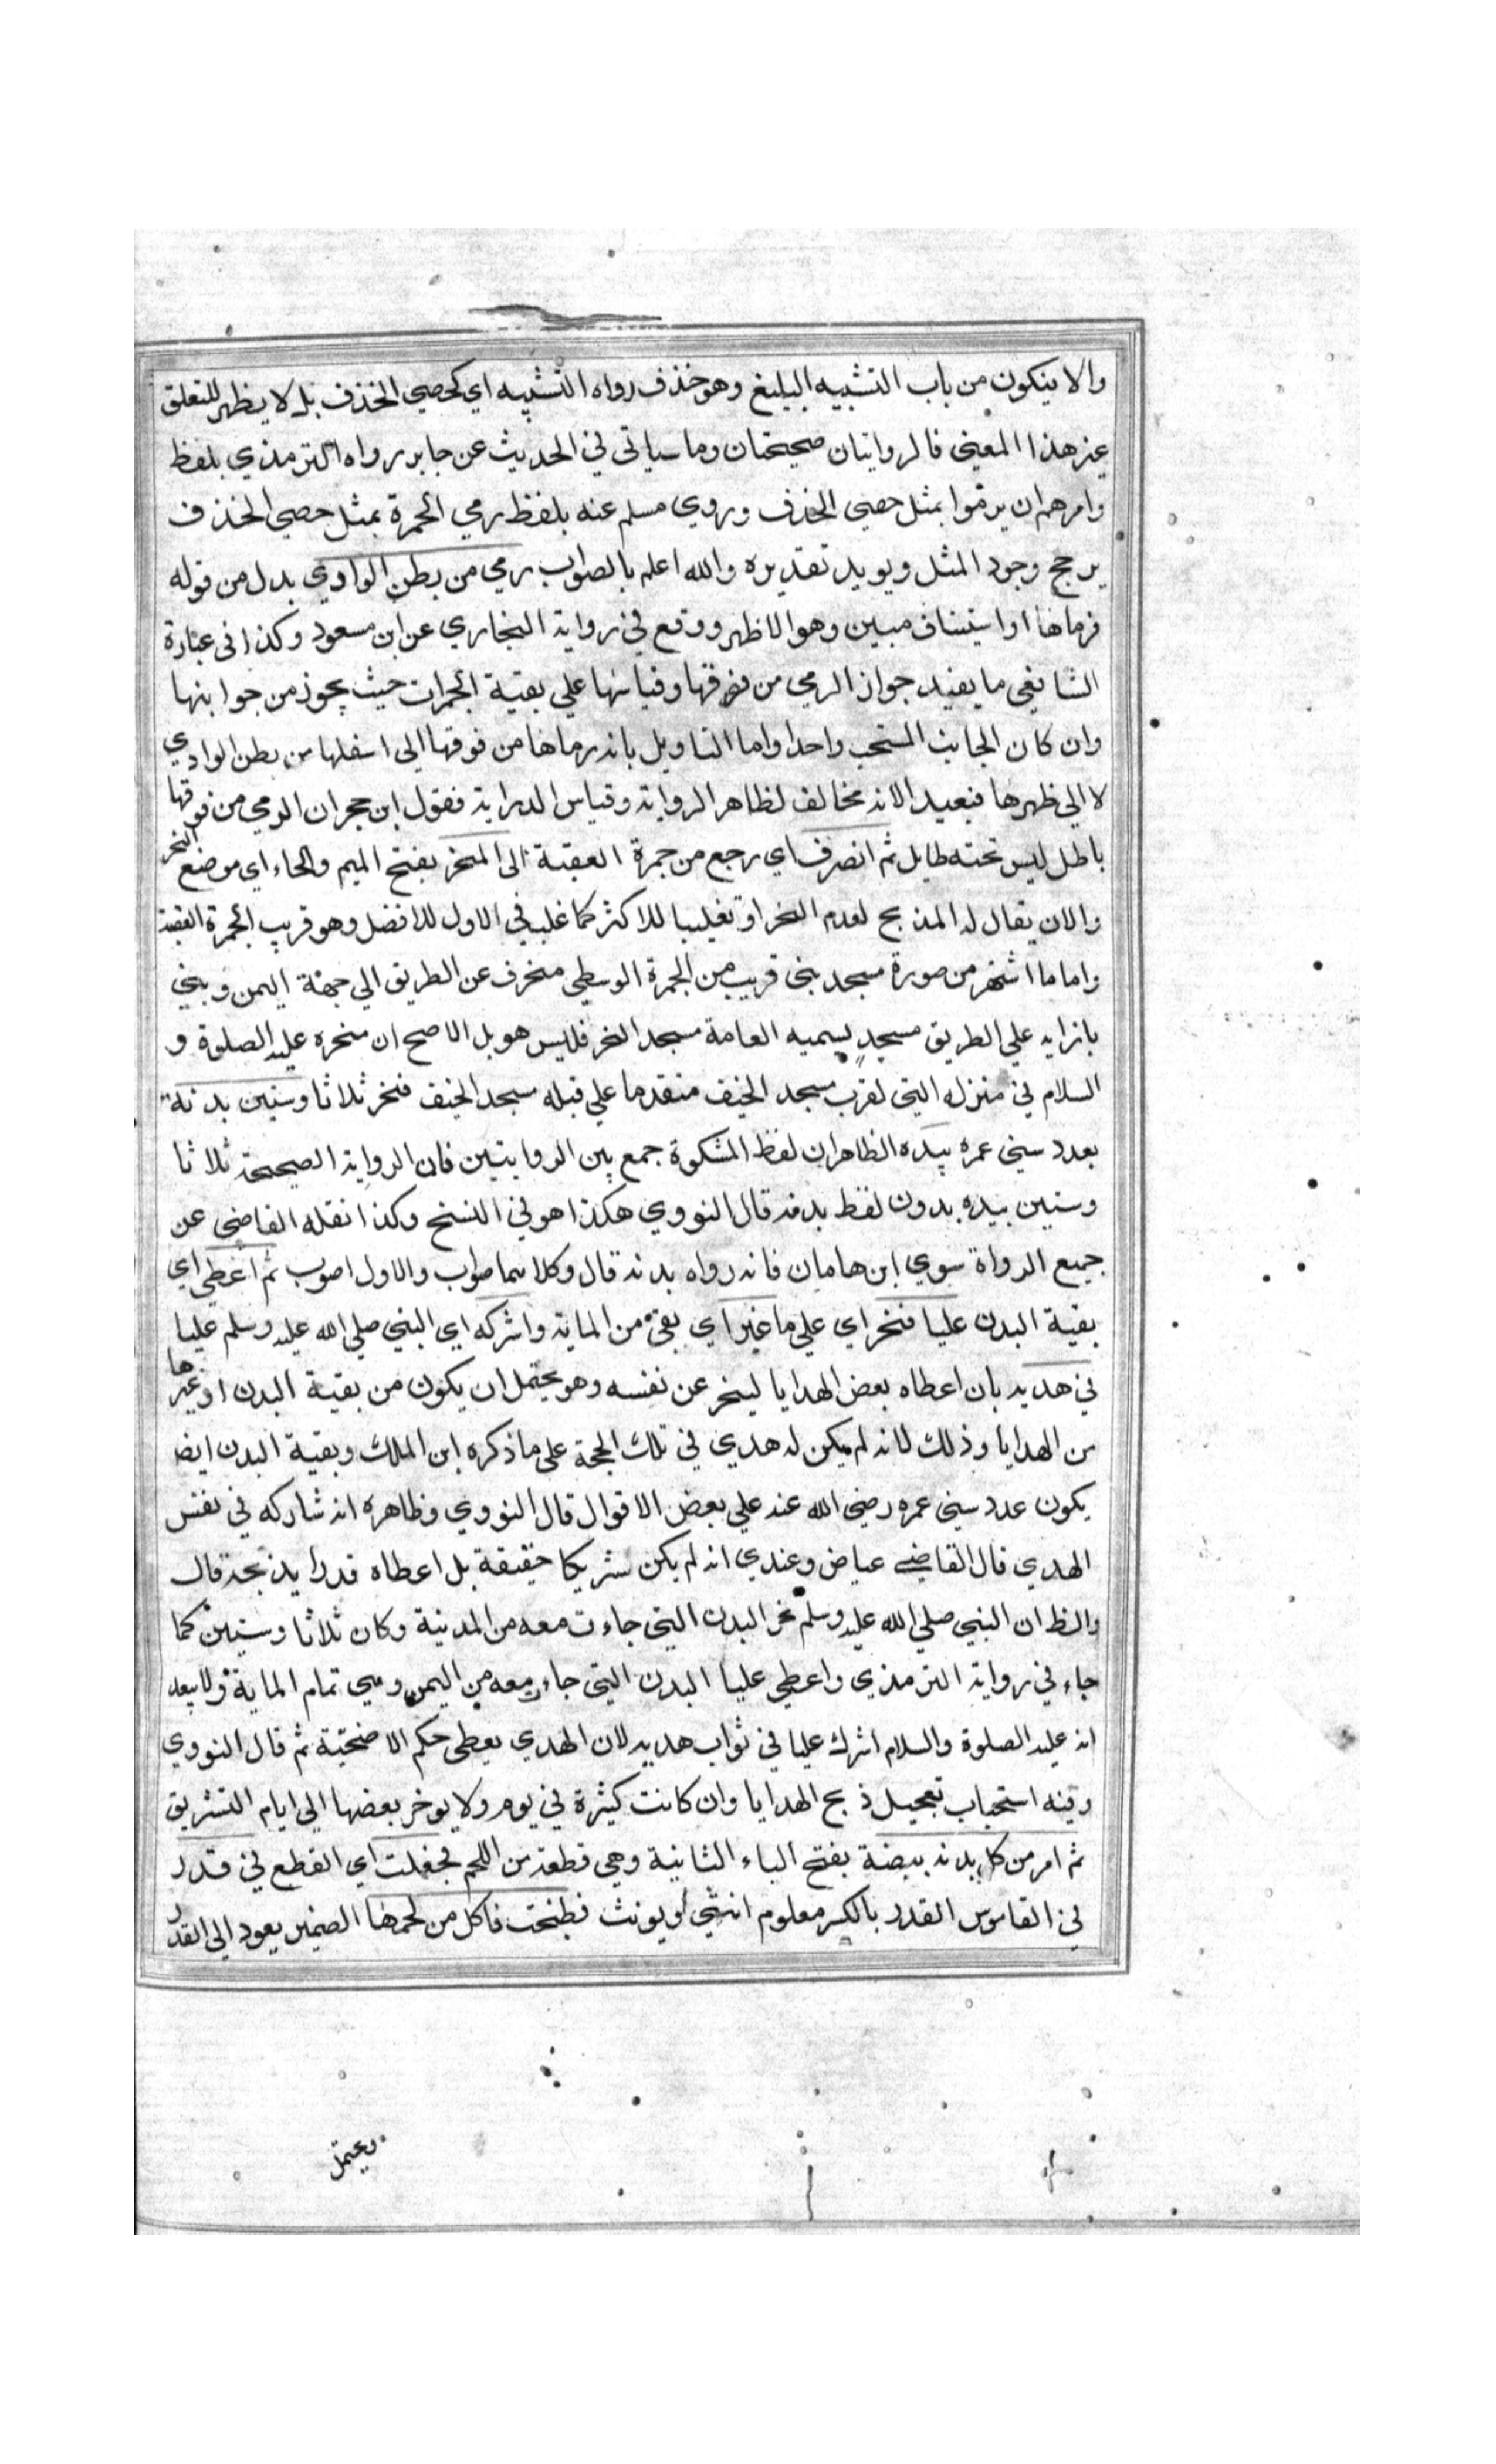 والا ينكون من باب التشبيه البليغ وهو حذف رواه التشبيه اي كحصى الخذف بل لا يظهر للتعلق
غير هذا المعنى فالروايتان صحيحتان وما سياتي في الحديث عن جابر رواه الترمذي بلفظ
وامرهم ان يرموا بمثل حصى الخذف وروي مسلم عنه بلفظ رمي الجمرة بمثل حصى الخذف
يرجح وجود المثل ويويد تقديره والله اعلم بالصواب رمي من بطن الوادي بدل من قوله
فرماها او استيناف مبين وهو الاظهر ووقع في رواية البخاري عن ابن مسعود وكذا في عبارة
الشافعي ما يفيد جواز الرمي من فوقها وقياسها علي بقية الجمرات حيث يجوز من جوانبها
وان كان الجانب المستحب واحدا واما التاويل بانه رماها من فوقها الى اسفلها من بطن الوادي
لا الي ظهرها فبعيد لانه مخالف لظاهر الرواية وقياس الدراية فقول ابن حجر ان الرمي من فوقها
باطل ليس تحته طايل ثم انصرف اي رجع من جمرة العقبة الى المنحر بفتح الميم والحاء اي موضع النحر
والان يقال له المذبح لعدم النحر او تغليبا للاكثر كما غلب في الاول للافضل وهو قريب الجمرة العقبة
واما ما اشتهر من صورة مسجد بني قريب من الجمرة الوسطى منحرف عن الطريق الي جهة اليمن وبني
بازايه علي الطريق مسجد يسميه العامة مسجد النحر فليس هو بل الاصح ان منحره عليه الصلوة و
السلام في منزله التي لقرب مسجد الخيف متقدما علي قبله مسجد الخيف فنحر ثلاثا وستين بدنة
بعدد سني عمره بيده الظاهر ان لفظ المشكوة جمع بين الروايتين فان الرواية الصحيحة ثلاثا
وستين بيده بدون لفظ بدنه قال النووي هكذا هو في النسخ وكذا نقله القاضي عن
جميع الرواة سوي ابن هامان فانه رواه بدنه قال وكلاهما صواب والاول اصوب ثم اعطى اي
بقية البدن عليا فنحر اي علي ما غبر اي بقي من الماية واشركه اي النبي صلي الله عليه وسلم عليا
في هديه بان اعطاه بعض الهدايا لينحر عن نفسه وهو يحتمل ان يكون من بقية البدن او غيرها
من الهدايا وذلك لانه لم يكن له هدي في تلك الحجة على ما ذكره ابن الملك وبقية البدن ايضا
يكون عدد سني عمره رضي الله عنه علي بعض الاقوال قال النووي وظاهره انه شاركه في نفس
الهدي قال القاضي عياض وعندي انه لم يكن شريكا حقيقة بل اعطاه قدرا يذبحه قال
والظ ان النبي صلي الله عليه وسلم نحر البدن التي جاءت معه من المدينة وكان ثلاثا وستين كما
جاء في رواية الترمذي واعطى عليا البدن التي جاءت معه من اليمن وهي تمام الماية ولا يبعد
انه عليه الصلوة والسلام اشرك عليا في ثواب هديه لان الهدي يعطى حكم الاضحية ثم قال النووي
وفيه استحباب تعجيل ذبح الهدايا وان كانت كثيرة في يوم ولا يوخر بعضها الي ايام التشريق
ثم امر من كل بدنه ببضعة بفتح الباء الثانية وهي قطعة من اللحم فجعلت اي القطع في قدر
في القاموس القدر بالكسر معلوم انثي او يونث فطبخت فاكل من لحمها الضمير يعود الى القدر
ويحتمل